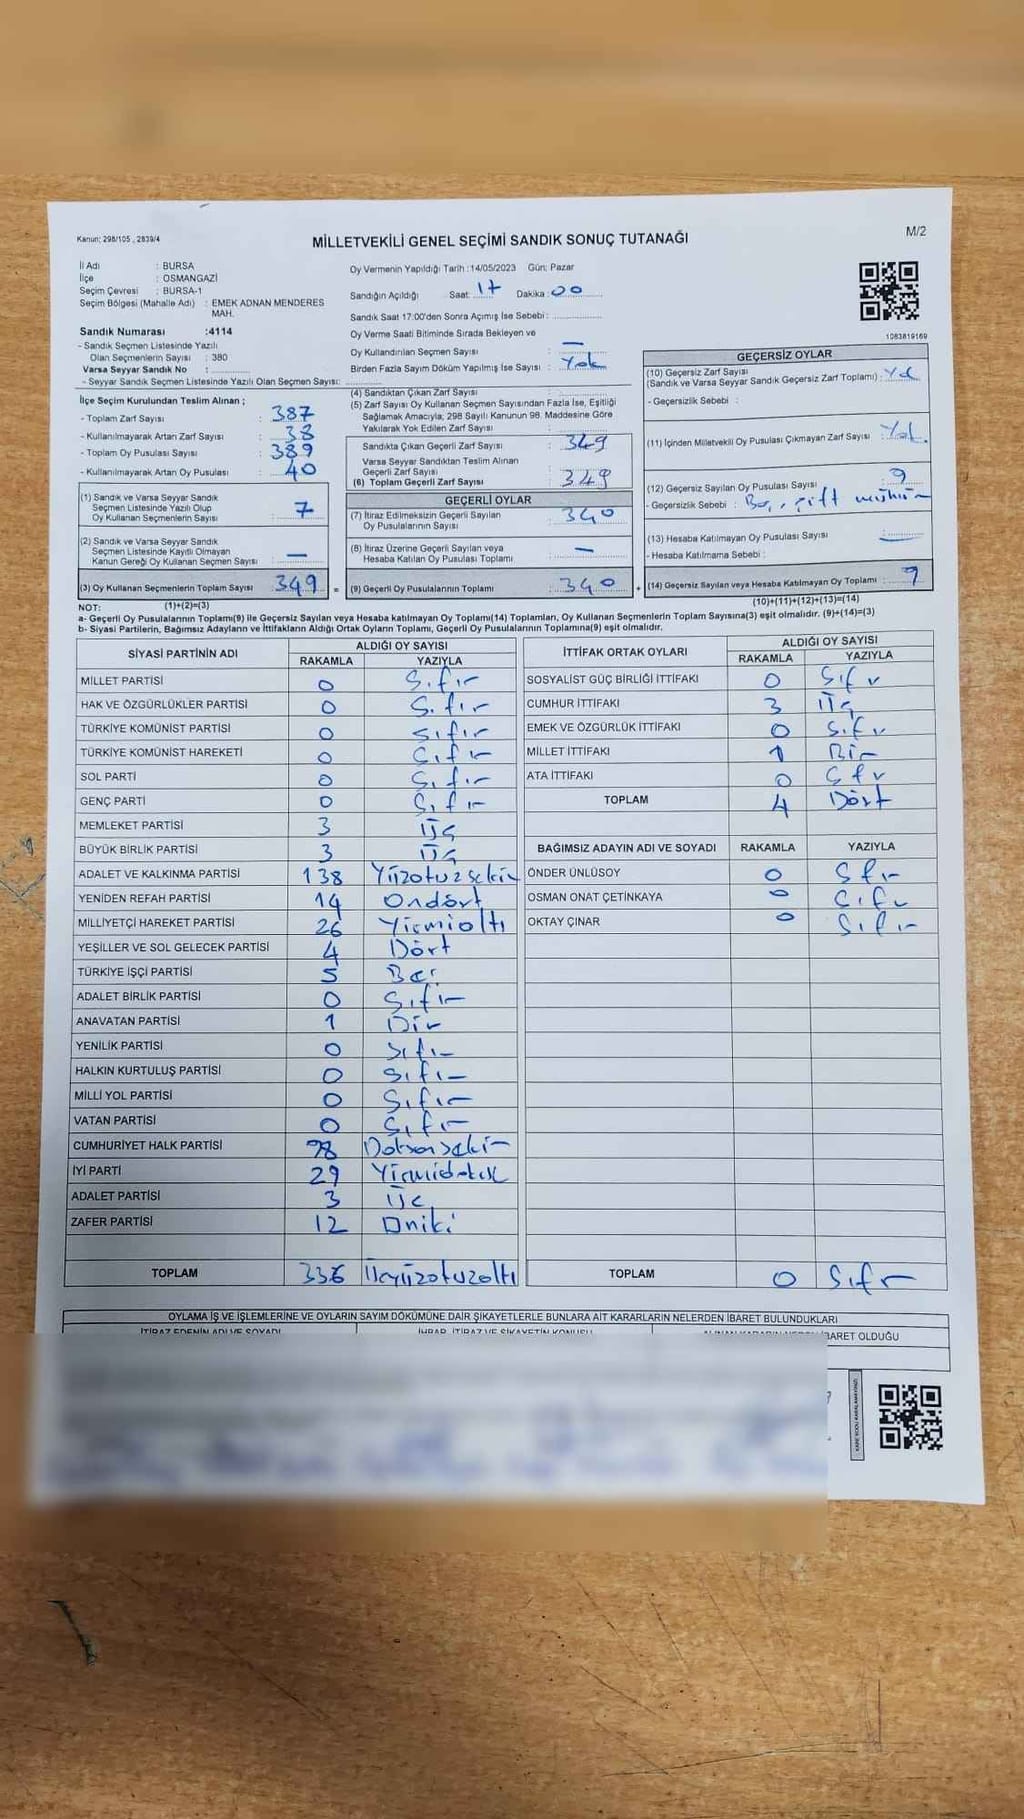 Kanun; 298/105 , 2839/4
MİLLETVEKİLİ GENEL SEÇİMİ SANDIK SONUÇ TUTANAĞI
M/2
İl Adı : BURSA
İlçe : OSMANGAZİ
Seçim Çevresi : BURSA-1
Seçim Bölgesi (Mahalle Adı) : EMEK ADNAN MENDERES MAH.
Sandık Numarası :4114
- Sandık Seçmen Listesinde Yazılı
Olan Seçmenlerin Sayısı : 380
Varsa Seyyar Sandık No :
- Seyyar Sandık Seçmen Listesinde Yazılı Olan Seçmen Sayısı:
Oy Vermenin Yapıldığı Tarih :14/05/2023 Gün: Pazar
Sandığın Açıldığı Saat: 17 Dakika : 00
Sandık Saat 17:00'den Sonra Açımış İse Sebebi :
Oy Verme Saati Bitiminde Sırada Bekleyen ve
Oy Kullandırılan Seçmen Sayısı : —
Birden Fazla Sayım Döküm Yapılmış İse Sayısı : Yok
1083819169
İlçe Seçim Kurulundan Teslim Alınan ;
- Toplam Zarf Sayısı : 387
- Kullanılmayarak Artan Zarf Sayısı : 38
- Toplam Oy Pusulası Sayısı : 389
- Kullanılmayarak Artan Oy Pusulası : 40
(1) Sandık ve Varsa Seyyar Sandık
Seçmen Listesinde Yazılı Olup
Oy Kullanan Seçmenlerin Sayısı : 7
(2) Sandık ve Varsa Seyyar Sandık
Seçmen Listesinde Kayıtlı Olmayan
Kanun Gereği Oy Kullanan Seçmen Sayısı : —
(3) Oy Kullanan Seçmenlerin Toplam Sayısı : 349 =
(4) Sandıktan Çıkan Zarf Sayısı :
(5) Zarf Sayısı Oy Kullanan Seçmen Sayısından Fazla İse, Eşitliği
Sağlamak Amacıyla; 298 Sayılı Kanunun 98. Maddesine Göre
Yakılarak Yok Edilen Zarf Sayısı :
Sandıkta Çıkan Geçerli Zarf Sayısı : 349
Varsa Seyyar Sandıktan Teslim Alınan
Geçerli Zarf Sayısı
(6) Toplam Geçerli Zarf Sayısı : 349
GEÇERLİ OYLAR
(7) İtiraz Edilmeksizin Geçerli Sayılan
Oy Pusulalarının Sayısı : 340
(8) İtiraz Üzerine Geçerli Sayılan veya
Hesaba Katılan Oy Pusulası Toplamı : —
(9) Geçerli Oy Pusulalarının Toplamı : 340 +
GEÇERSİZ OYLAR
(10) Geçersiz Zarf Sayısı
(Sandık ve Varsa Seyyar Sandık Geçersiz Zarf Toplamı) : Yok
- Geçersizlik Sebebi :
(11) İçinden Milletvekili Oy Pusulası Çıkmayan Zarf Sayısı : Yok.
(12) Geçersiz Sayılan Oy Pusulası Sayısı : 9
- Geçersizlik Sebebi : Boş, çift mühür
(13) Hesaba Katılmayan Oy Pusulası Sayısı : —
- Hesaba Katılmama Sebebi :
(14) Geçersiz Sayılan veya Hesaba Katılmayan Oy Toplamı : 9
NOT: (1)+(2)=(3)
(10)+(11)+(12)+(13)=(14)
a- Geçerli Oy Pusulalarının Toplamı(9) ile Geçersiz Sayılan veya Hesaba katılmayan Oy Toplamı(14) Toplamları, Oy Kullanan Seçmenlerin Toplam Sayısına(3) eşit olmalıdır. (9)+(14)=(3)
b- Siyasi Partilerin, Bağımsız Adayların ve İttifakların Aldığı Ortak Oyların Toplamı, Geçerli Oy Pusulalarının Toplamına(9) eşit olmalıdır.
SİYASİ PARTİNİN ADI ALDIĞI OY SAYISI
RAKAMLA YAZIYLA
MİLLET PARTİSİ 0 Sıfır
HAK VE ÖZGÜRLÜKLER PARTİSİ 0 Sıfır
TÜRKİYE KOMÜNİST PARTİSİ 0 Sıfır
TÜRKİYE KOMÜNİST HAREKETİ 0 Sıfır
SOL PARTİ 0 Sıfır
GENÇ PARTİ 0 Sıfır
MEMLEKET PARTİSİ 3 Üç
BÜYÜK BİRLİK PARTİSİ 3 Üç
ADALET VE KALKINMA PARTİSİ 138 Yüzotuzsekiz
YENİDEN REFAH PARTİSİ 14 Ondört
MİLLİYETÇİ HAREKET PARTİSİ 26 Yirmialtı
YEŞİLLER VE SOL GELECEK PARTİSİ 4 Dört
TÜRKİYE İŞÇİ PARTİSİ 5 Beş
ADALET BİRLİK PARTİSİ 0 Sıfır
ANAVATAN PARTİSİ 1 Bir
YENİLİK PARTİSİ 0 Sıfır
HALKIN KURTULUŞ PARTİSİ 0 Sıfır
MİLLİ YOL PARTİSİ 0 Sıfır
VATAN PARTİSİ 0 Sıfır
CUMHURİYET HALK PARTİSİ 98 Doksansekiz
İYİ PARTİ 29 Yirmidokuz
ADALET PARTİSİ 3 Üç
ZAFER PARTİSİ 12 Oniki
TOPLAM 336 Üçyüzotuzaltı
İTTİFAK ORTAK OYLARI ALDIĞI OY SAYISI
RAKAMLA YAZIYLA
SOSYALİST GÜÇ BİRLİĞİ İTTİFAKI 0 Sıfır
CUMHUR İTTİFAKI 3 Üç
EMEK VE ÖZGÜRLÜK İTTİFAKI 0 Sıfır
MİLLET İTTİFAKI 1 Bir
ATA İTTİFAKI 0 Sıfır
TOPLAM 4 Dört
BAĞIMSIZ ADAYIN ADI VE SOYADI RAKAMLA YAZIYLA
ÖNDER ÜNLÜSOY 0 Sıfır
OSMAN ONAT ÇETİNKAYA 0 Sıfır
OKTAY ÇINAR 0 Sıfır
TOPLAM 0 Sıfır
OYLAMA İŞ VE İŞLEMLERİNE VE OYLARIN SAYIM DÖKÜMÜNE DAİR ŞİKAYETLERLE BUNLARA AİT KARARLARIN NELERDEN İBARET BULUNDUKLARI
İTİRAZ EDENİN ADI VE SOYADI İHBAR, İTİRAZ VE ŞİKAYETİN KONUSU İBARET OLDUĞU